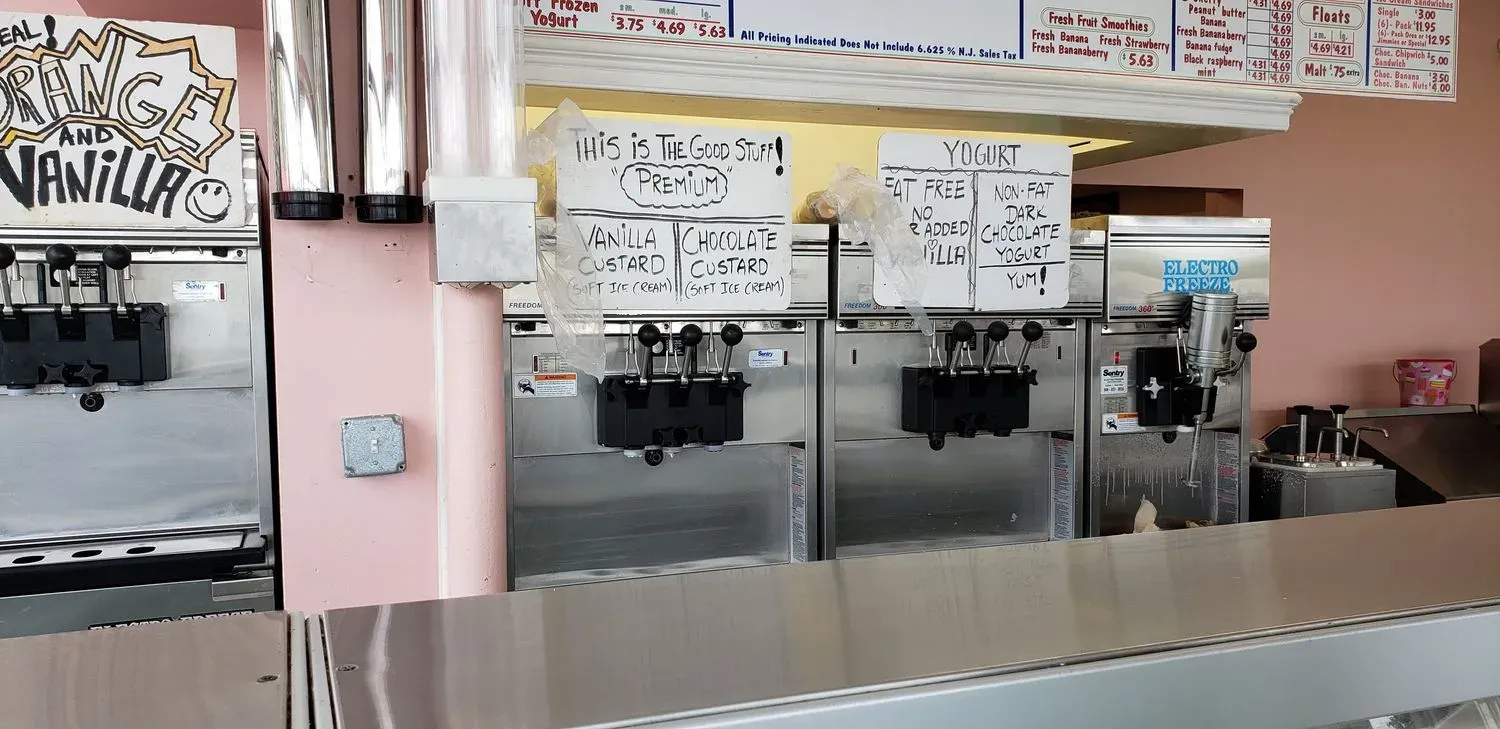 Frozen
Yogurt
sm. med. lg.
$3.75 $4.69 $5.63
All Pricing Indicated Does Not Include 6.625 % N.J. Sales Tax
Fresh Fruit Smoothies
Fresh Banana Fresh Strawberry
Fresh Bananaberry $5.63
Peanut butter
Banana
Fresh Bananaberry
Banana fudge
Black raspberry
mint
$4.31 $4.69
Floats
sm. lg.
$4.69 $4.21
Malt $.75 extra
Single $3.00
(6)- Pack $11.95
(6)- Pack Oreo or $12.95
Jimmies or Special
Choc. Chipwich $5.00
Sandwich
Choc. Banana $3.50
Choc. Ban. Nuts $4.00
REAL!
ORANGE
AND
VANILLA
THIS IS THE GOOD STUFF!
"PREMIUM"
VANILLA
CUSTARD
(SOFT ICE CREAM)
CHOCOLATE
CUSTARD
(SOFT ICE CREAM)
YOGURT
FAT FREE
NO
ADDED
NON-FAT
DARK
CHOCOLATE
YOGURT
YUM!
ELECTRO
FREEZE
FREEDOM
FREEDOM 360°
FREEDOM 360°
Sentry
Sentry
Sentry
WARNING
ELECTRO FREEZE